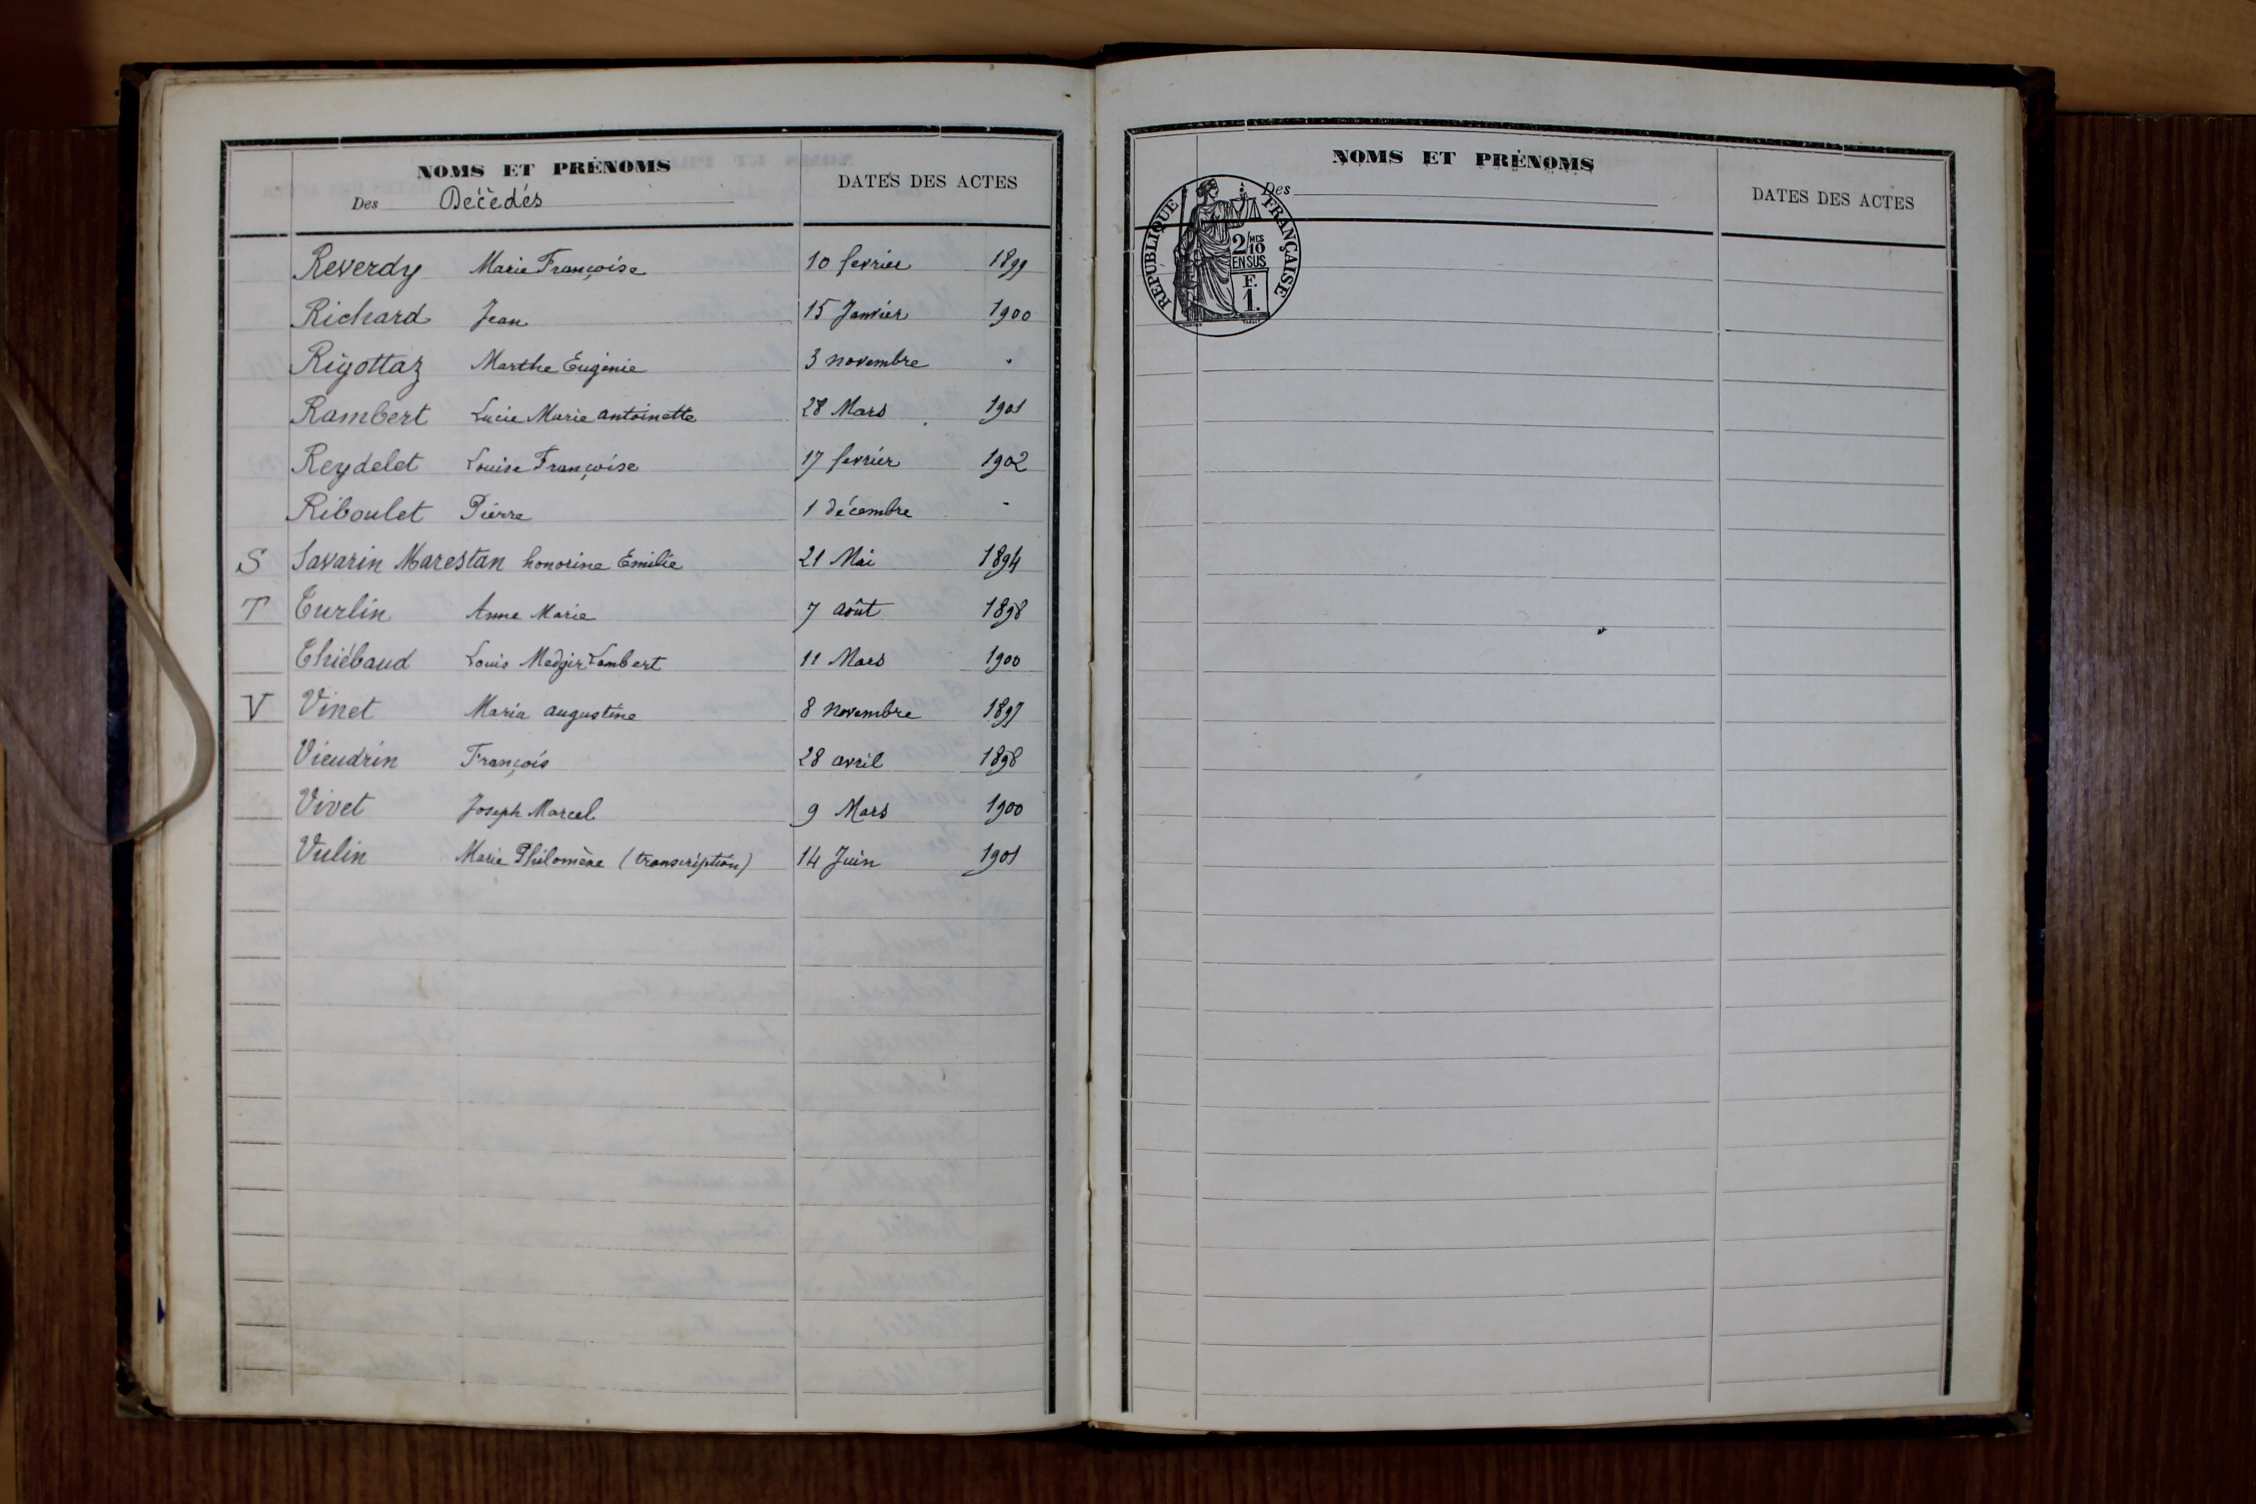 NOMS ET PRÉNOMS
Des Décèdés
DATES DES ACTES
Reverdy Marie Françoise 10 fevrier 1899
Richard Jean 15 Janvier 1900
Rigottaz Marthe Eugènie 3 novembre "
Rambert Lucie Marie antoinette 28 Mars 1901
Reydelet Louise Françoise 17 fevrier 1902
Riboulet Pierre 1 décembre -
S Savarin Marestan honorine Emilie 21 Mai 1894
T Turlin Anne Marie 7 août 1898
Thiébaud Louis Lambert 11 Mars 1900
V Vinet Maria augustine 8 novembre 1897
Vieudrin François 28 avril 1898
Vivet Joseph Marcel 9 Mars 1900
Vulin Marie Philomène (transcription) 14 Juin 1901
NOMS ET PRÉNOMS
Des
DATES DES ACTES
RÉPUBLIQUE FRANÇAISE
2/10 MES
EN SUS
F.
1.